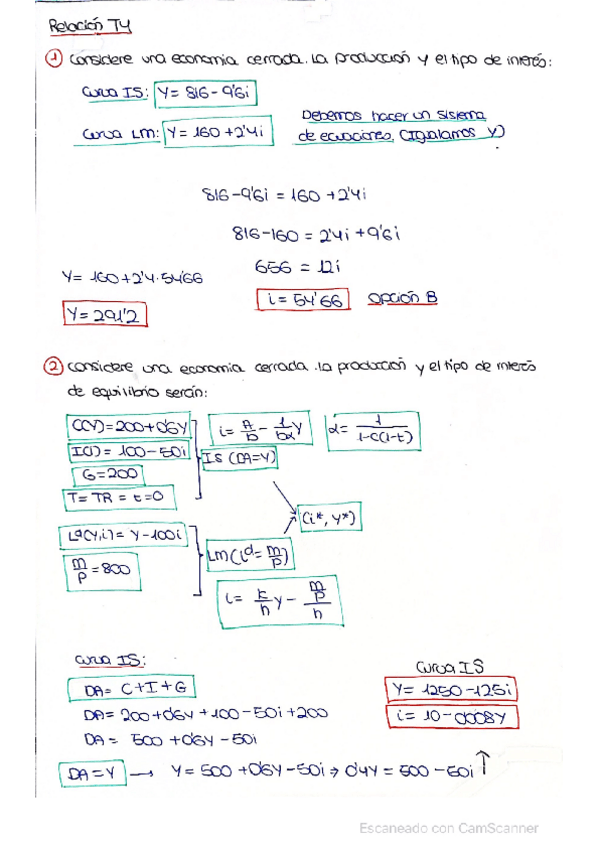 Relación T4
① Considere una economia cerrada. La producción y el tipo de interés:
Curva IS: Y= 816-9'6i
Curva LM: Y= 160 +2'4i
Debemos hacer un sistema
de ecuaciones (Igualamos Y)
816-9'6i = 160 +2'4i
816-160 = 2'4i +9'6i
656 = 12i
Y= 160+2'4·54'66
i= 54'66 Opción B
Y= 291'2
② Considere una economia cerrada. La producción y el tipo de interés
de equilibrio serán:
C(Y)=200+0'6Y
I(i)= 100-50i
G=200
T= TR = t=0
i= A/b - 1/bα Y
α= 1/1-c(1-t)
IS (DA=Y)
(i*, Y*)
Ld(Y,i)= Y-100i
m/p = 800
LM (Ld= m/p)
i= k/h Y - m/p/h
Curva IS:
DA= C+I+G
DA= 200+0'6Y+100-50i+200
DA= 500+0'6Y-50i
DA=Y → Y=500+0'6Y-50i ⇒ 0'4Y = 500-50i ↑
Curva IS
Y= 1250-125i
i= 10-0'008Y
Escaneado con CamScanner